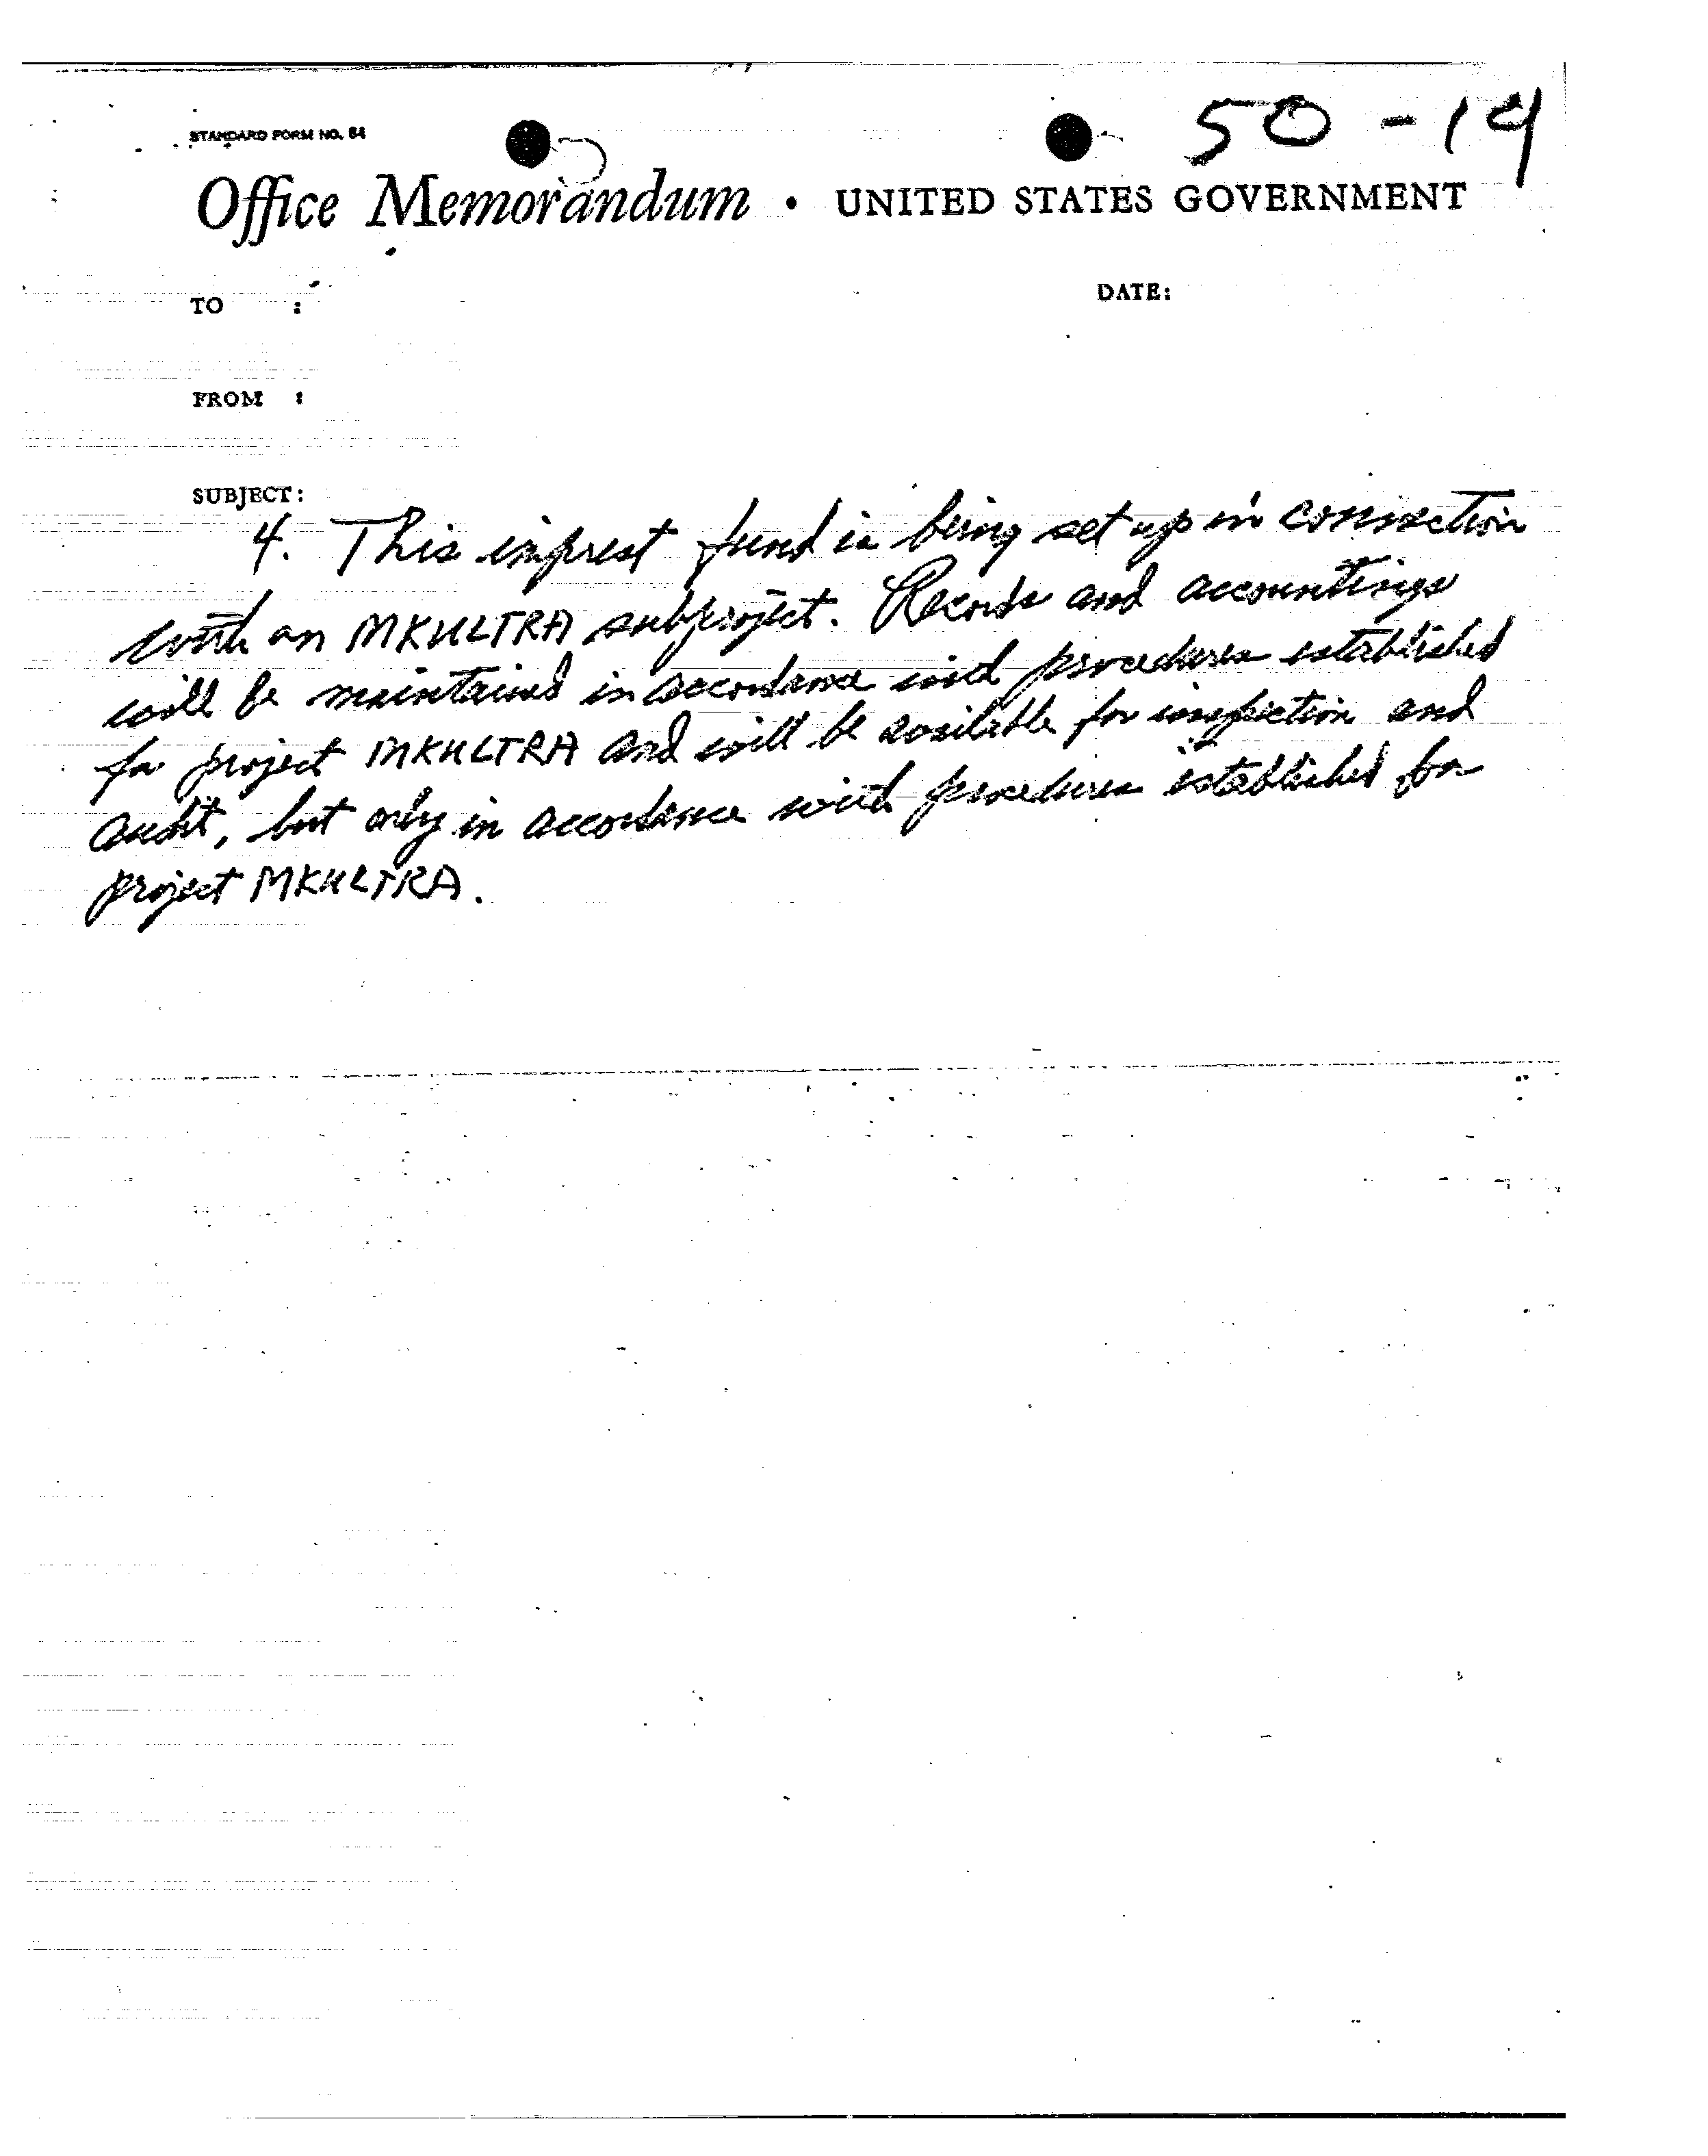 50-14
STANDARD FORM NO. 64
Office Memorandum • UNITED STATES GOVERNMENT
TO :
DATE:
FROM :
SUBJECT:
4. This imprest fund is being set up in connection
with an MKULTRA subproject. Records and accountings
will be maintained in accordance with procedures established
for project MKULTRA and will be available for inspection and
audit, but only in accordance with procedures established for
project MKULTRA.